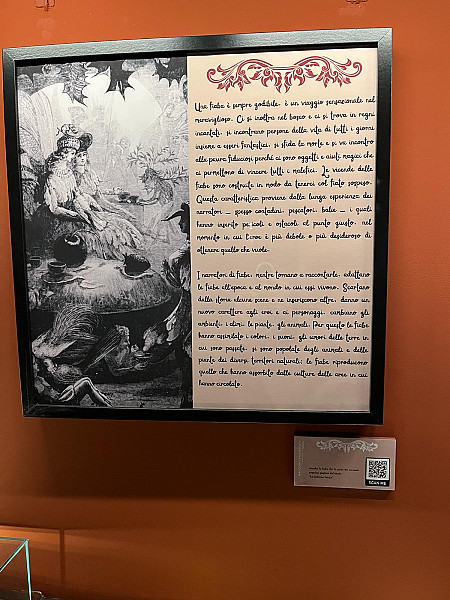 Una fiaba è sempre godibile. è un viaggio sensazionale nel
meraviglioso. Ci si inoltra nel bosco e ci si trova in regni
incantati, si incontrano persone della vita di tutti i giorni
insieme a esseri fantastici, si sfida la morte e si va incontro
alle paure fiduciosi perché ci sono oggetti e aiuti magici che
ci permettono di vincere tutti i malefici. Le vicende delle
fiabe sono costruite in modo da tenerci col fiato sospeso.
Questa caratteristica proviene dalla lunga esperienza dei
narratori _ spesso contadini, pescatori, balie _ i quali
hanno inserito pericoli e ostacoli al punto giusto, nel
momento in cui l'eroe è più debole o più desideroso di
ottenere quello che vuole.
I narratori di fiabe, mentre tornano a raccontarle, adattano
le fiabe all'epoca e al mondo in cui essi vivono. Scartano
dalla storia alcune scene e ne inseriscono altre, danno un
nuovo carattere agli eroi e ai personaggi, cambiano gli
ambienti, i climi, le piante, gli animali. Per questo le fiabe
hanno assimilato i colori, i suoni, gli umori delle terre in
cui sono passate, si sono popolate degli animali e delle
piante dei diversi territori naturali; le fiabe riproducono
quello che hanno assorbito dalle culture delle aree in cui
hanno circolato.
SCAN ME